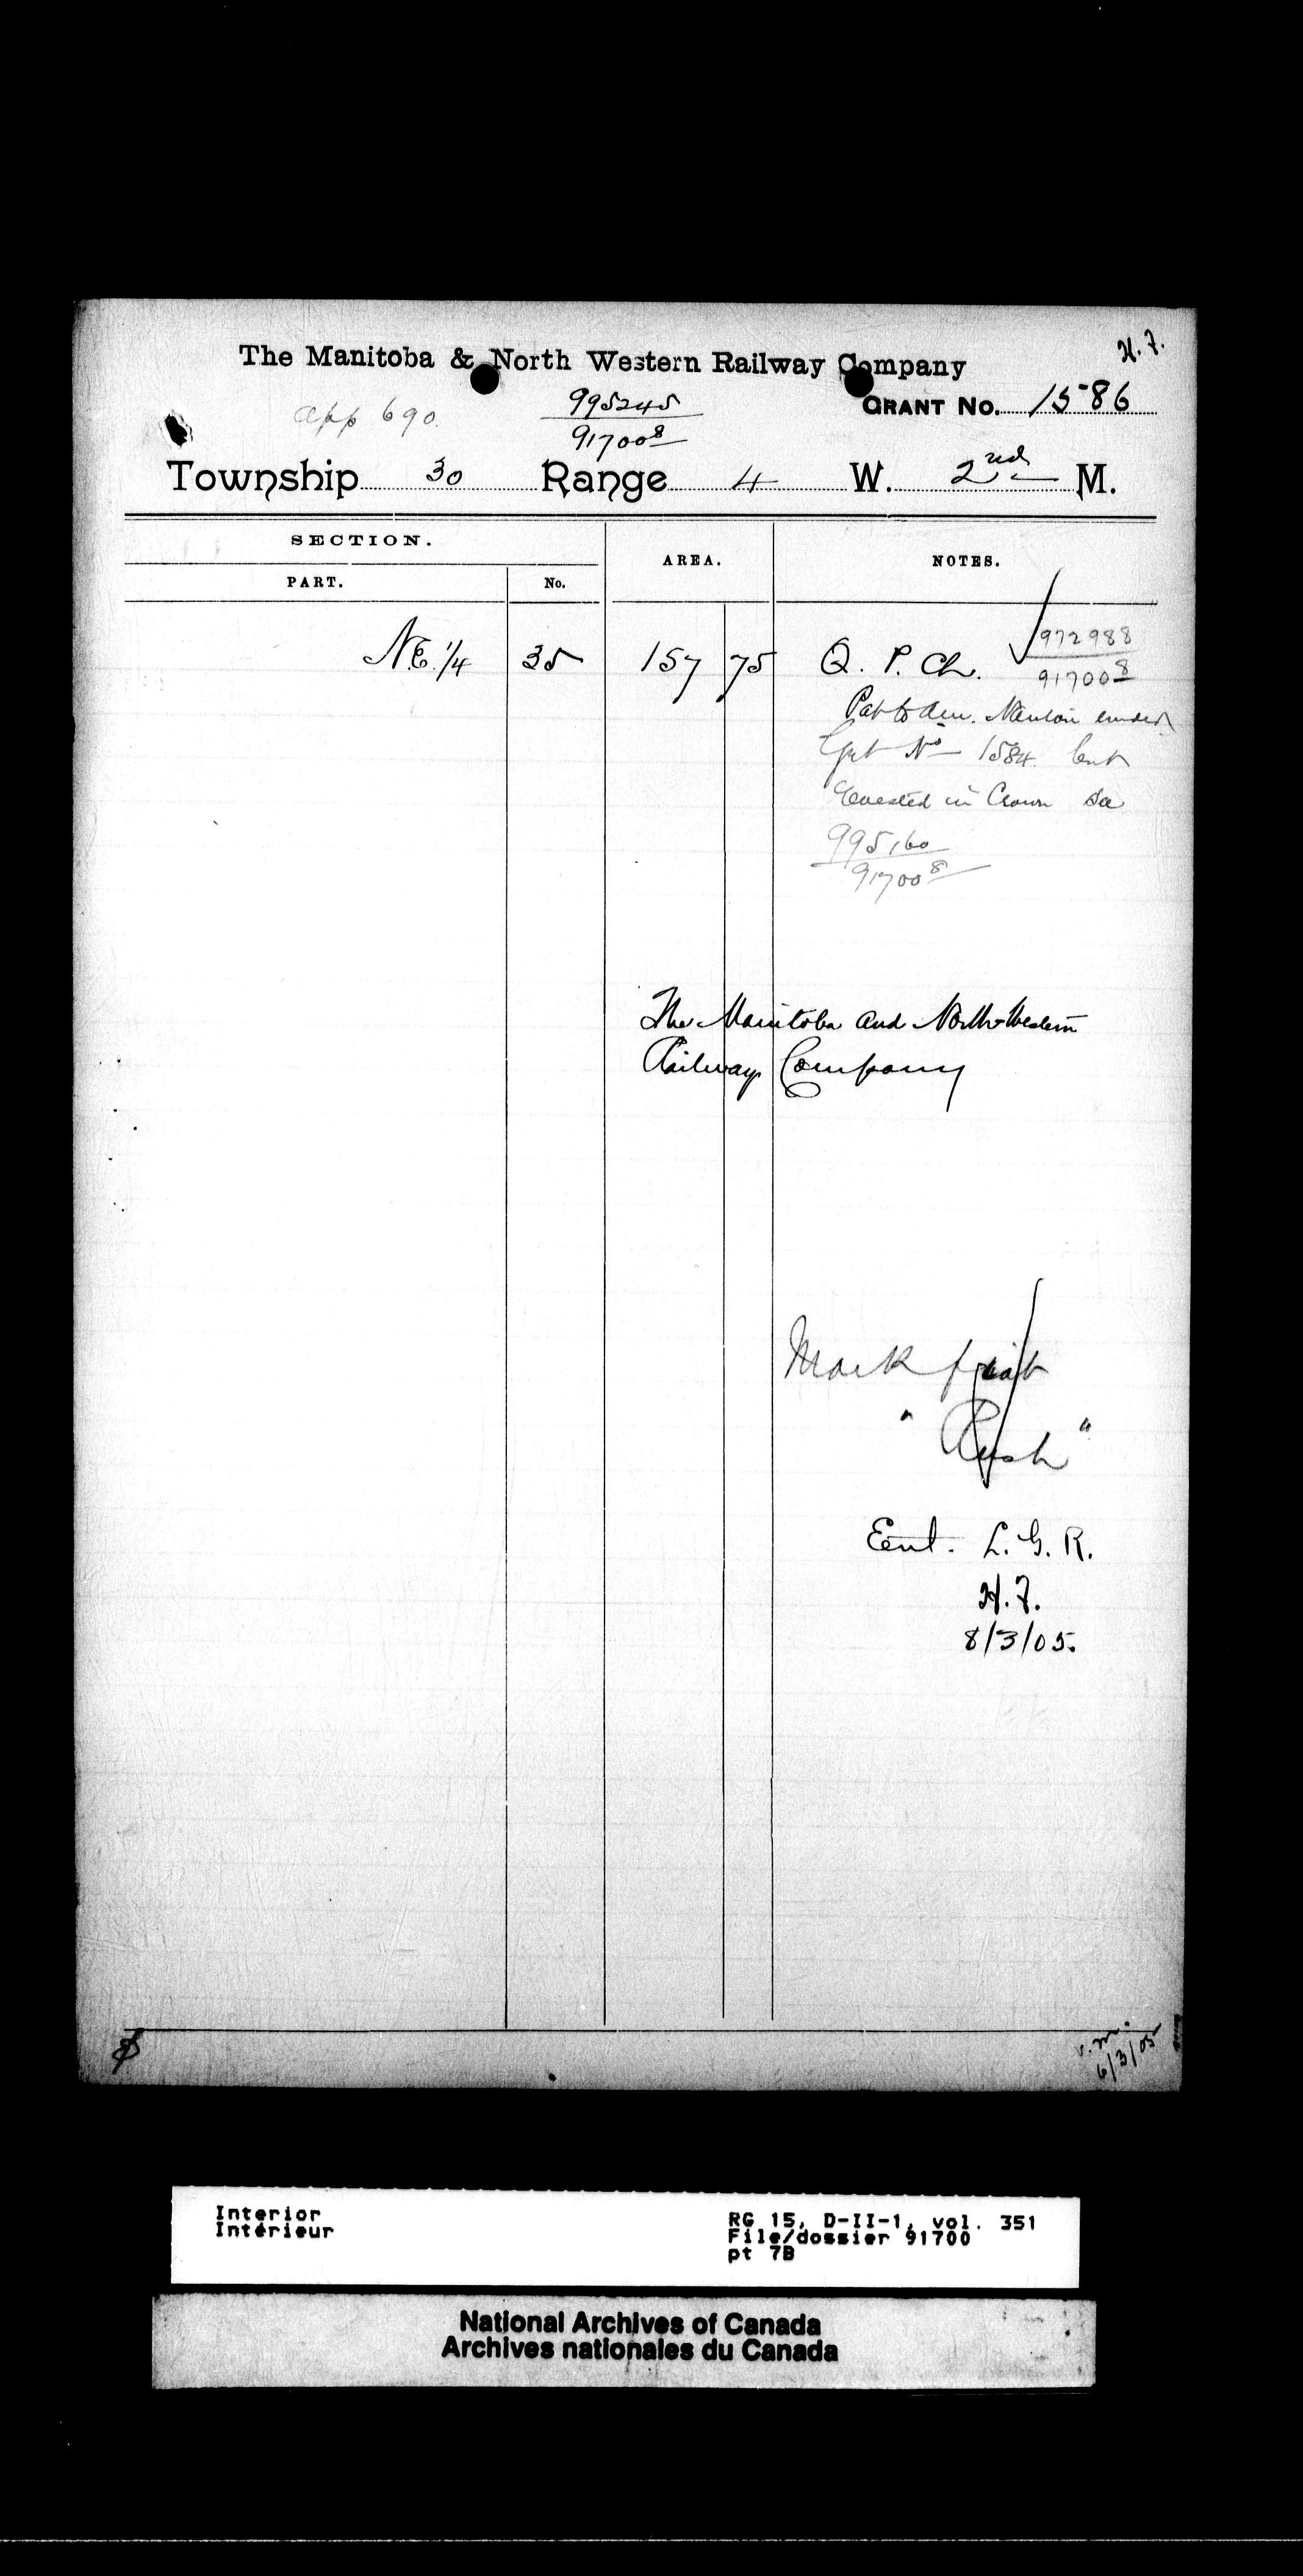 H. F.
The Manitoba & North Western Railway Company
app 690.
995245
91700 8
GRANT No. 1586
Township 30 Range 4 W. 2nd M.
SECTION.
AREA.
NOTES.
PART.
No.
N.E. 1/4 35 157 75 Q. P. Ch.
972988
91700 8
Pat to Man. under
Grt No 1584 but
Revested in Crown See
995160
91700 8
The Manitoba and North Western
Railway Company
Mark
" Rush "
Ent. L. G. R.
H. F.
8/3/05.
6/3/05
Interior
Intérieur
RG 15, D-II-1, vol. 351
File/dossier 91700
pt 7B
National Archives of Canada
Archives nationales du Canada